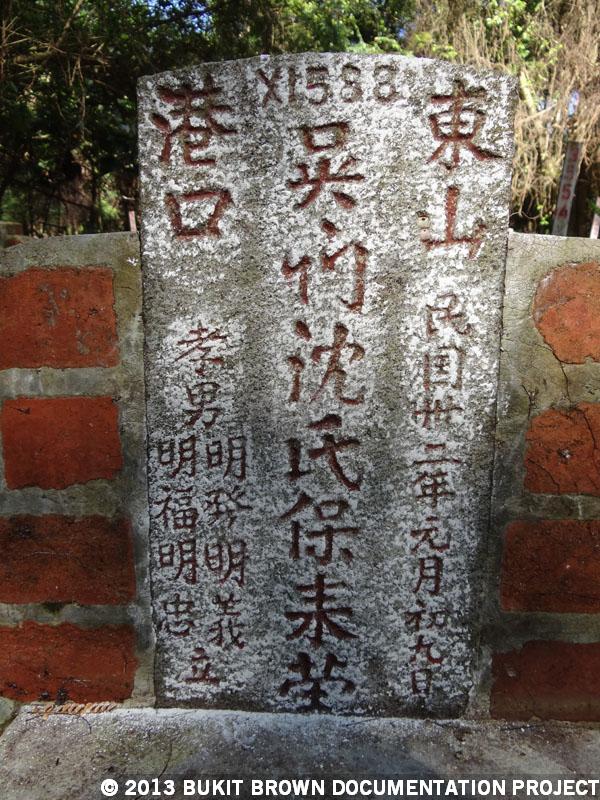 X1588
東山
民国卅二年元月初九日
吴竹沈氏保耒茔
港口
孝男明發明義
明福明忠立
© 2013 BUKIT BROWN DOCUMENTATION PROJECT